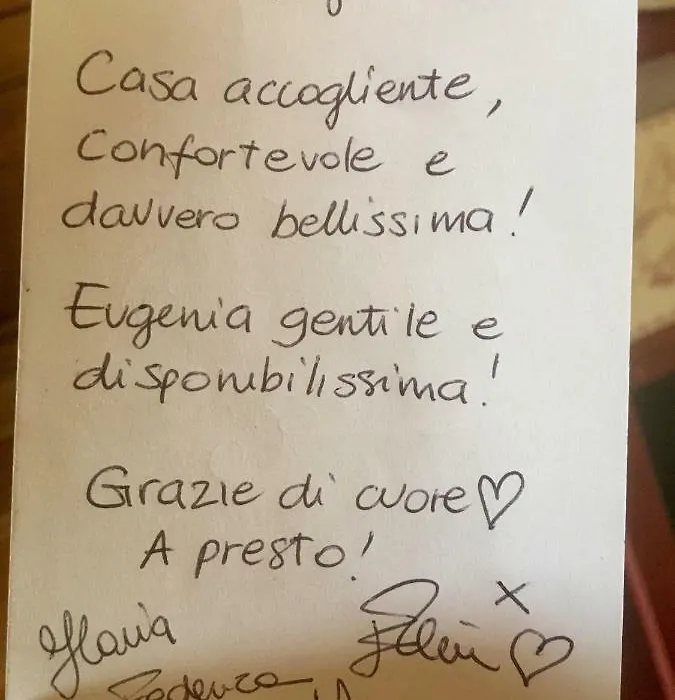 Casa accogliente,
Confortevole e
davvero bellissima!
Eugenia gentile e
disponibilissima!
Grazie di cuore♡
A presto!
Ilaria